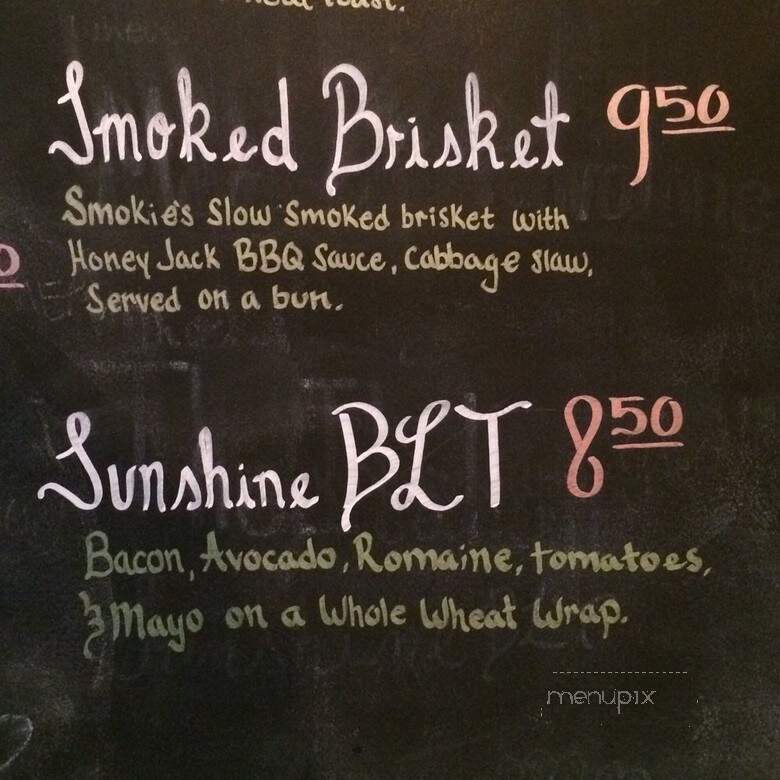 Smoked Brisket 9.50
Smokie's Slow Smoked brisket with
Honey Jack BBQ Sauce, Cabbage slaw,
Served on a bun.
Sunshine BLT 8.50
Bacon, Avocado, Romaine, tomatoes,
& Mayo on a Whole Wheat Wrap.
menupix